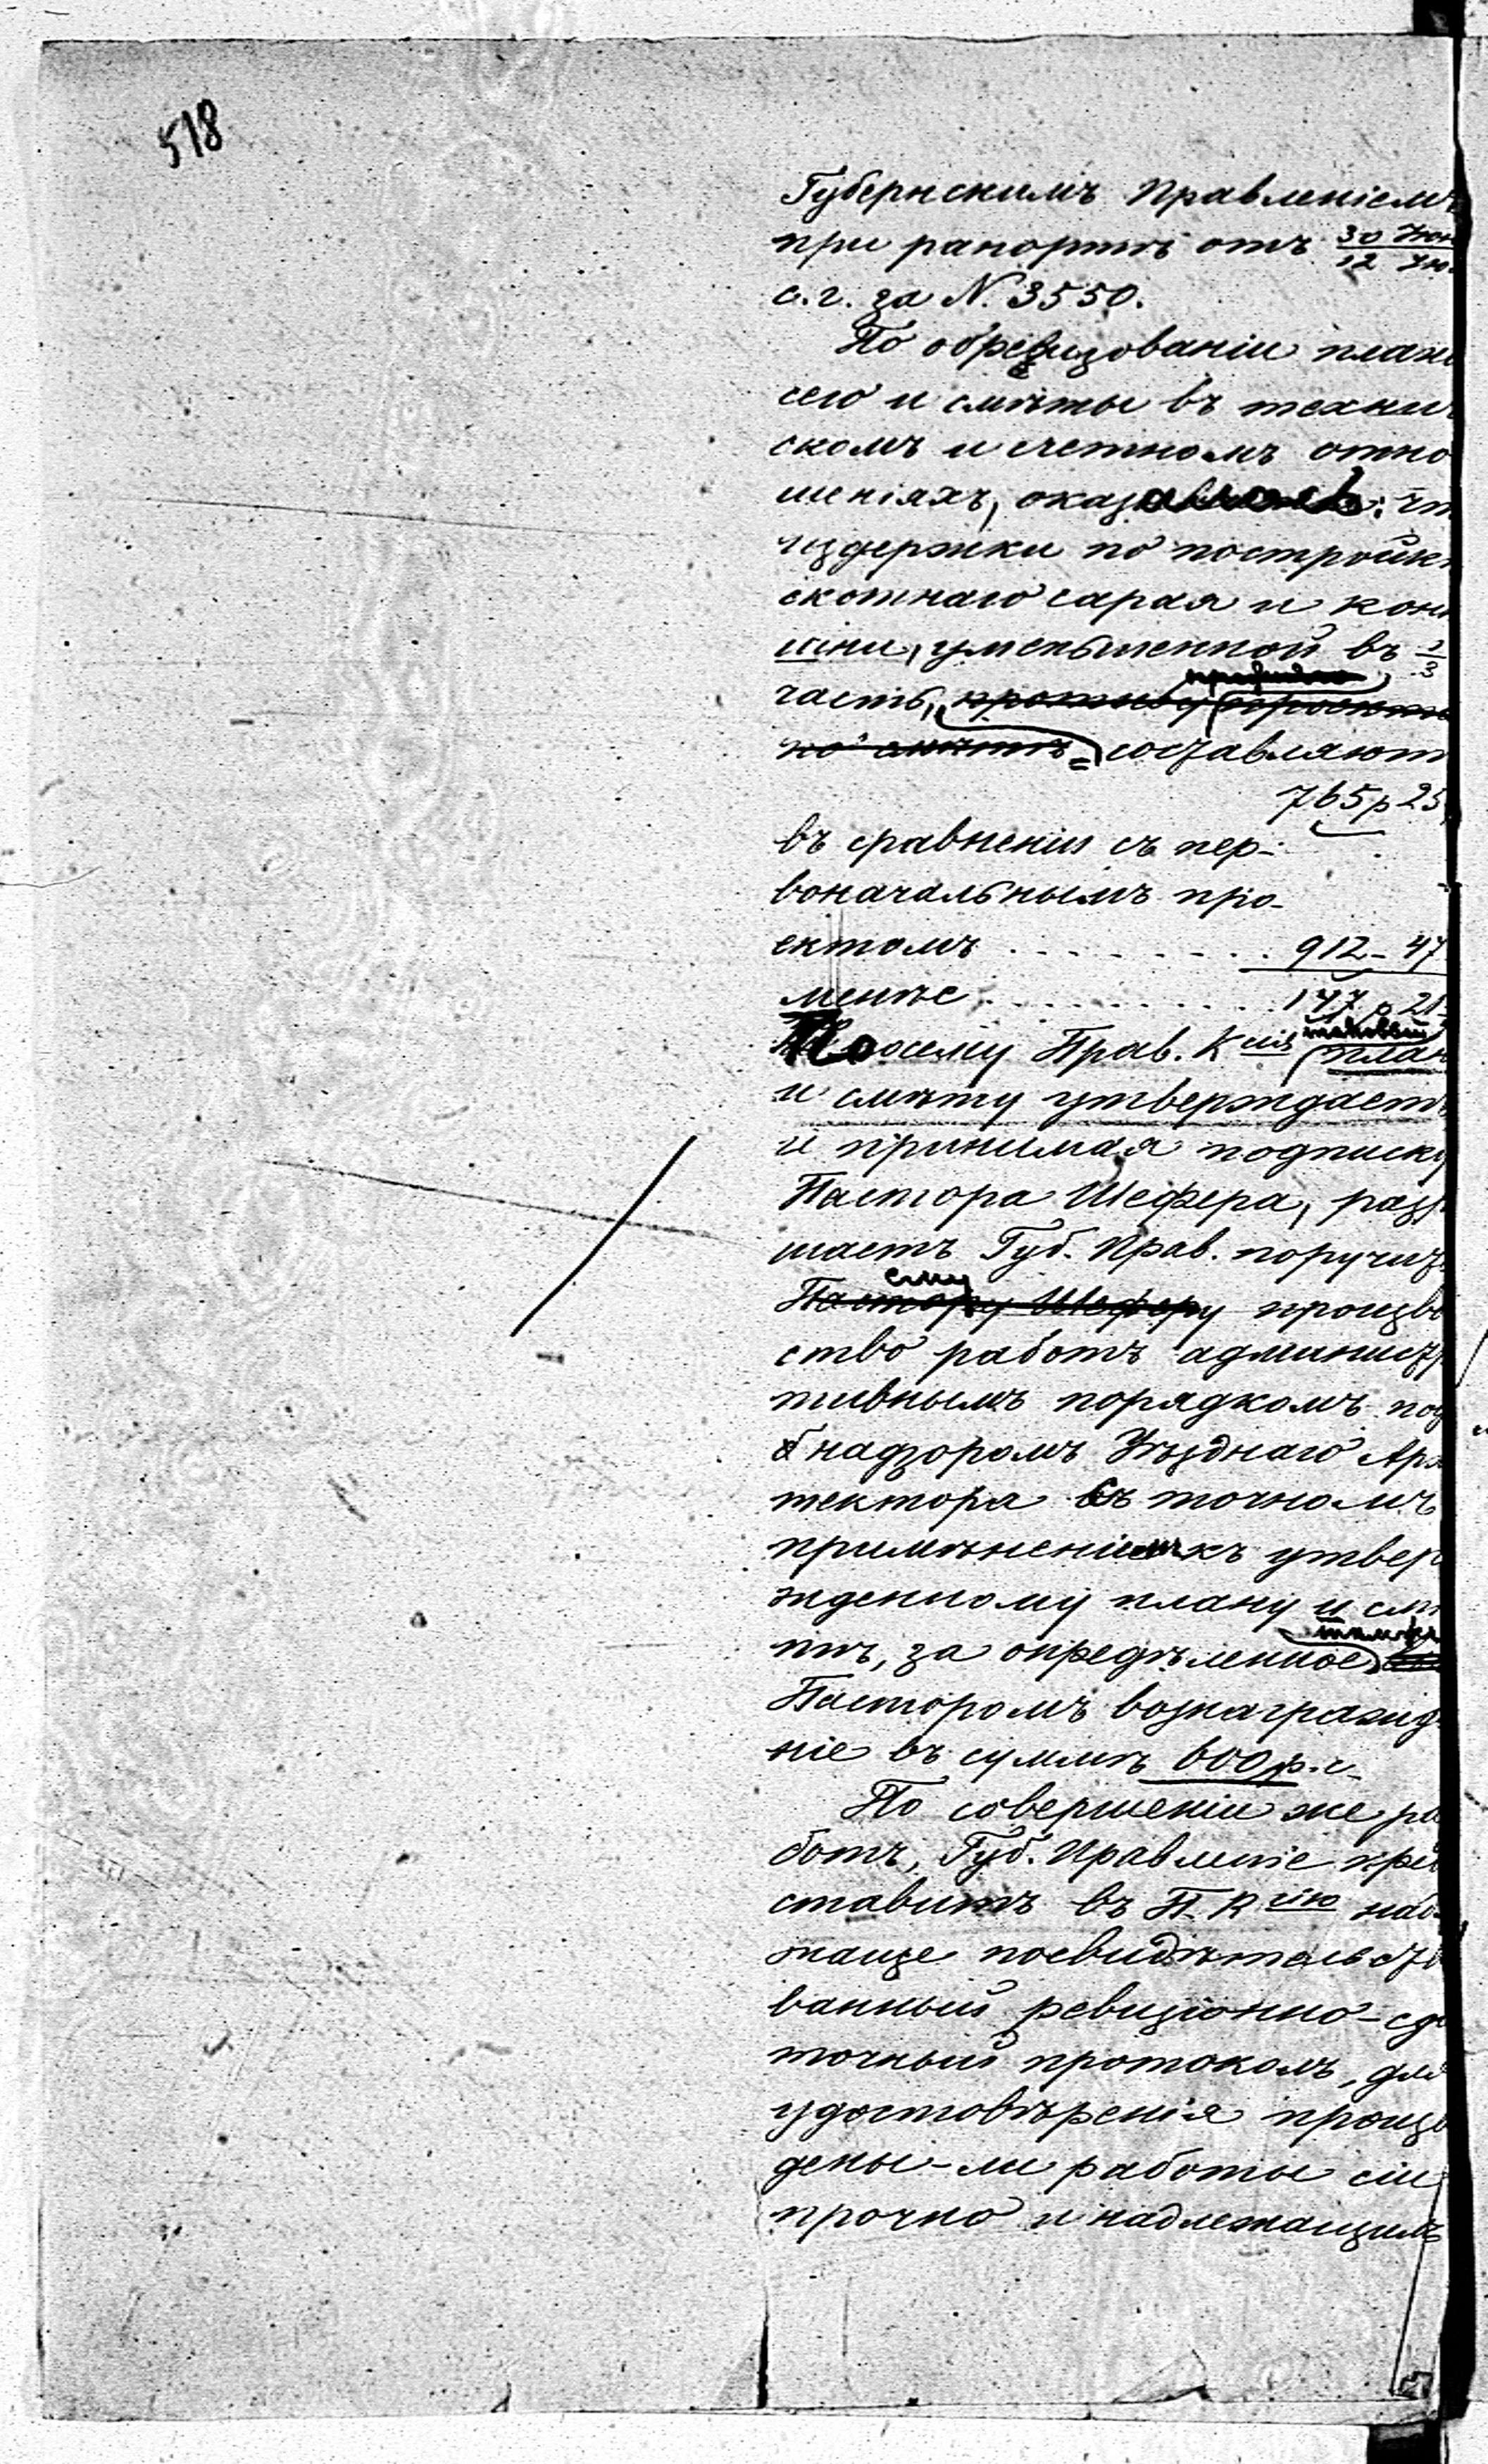 518
Губернскимъ Правленіемъ
при рапортѣ отъ 30 Іюн
12 Ію.
с.г. за N. 3550.
По обревизованіи плана
сего и смѣты въ технич
скомъ и счетномъ отно
шеніяхъ, оказалось: чт
издержки по постройк
скотнаго сарая и кон
шни, уменьшенной въ 1/3
часть, противу проекта
по смѣтѣ составляют
765 р 25
въ сравненіи съ пер-
воначальнымъ про-
ектомъ . . . . . . . . 912 - 47
менѣе . . . . . . . . . 147 р 21
таковый
По сему Прав. Кмія план
и смѣту утверждаетъ
и принимая подписку
Пастора Шефера, разр
шаетъ Губ. Прав. поручит
ему
Пастору Шеферу произв
ство работъ администр
тивнымъ порядкомъ под
надзоромъ Уѣзднаго Арх
тектора въ точномъ
примѣненіи къ утвер
жденному плану и смѣ
тѣ, за опредѣленное
Пасторомъ вознагражд
ніе въ суммѣ 600 р. с.
По совершеніи же ра
ботъ, Губ. Правленіе пред
ставитъ въ П. Кмію надл
жаще посвидѣтельст
ванный ревизіонно-сд
точный протоколъ, для
удостовѣренія произв
дены-ли работы сіи
прочно и надлежащимъ